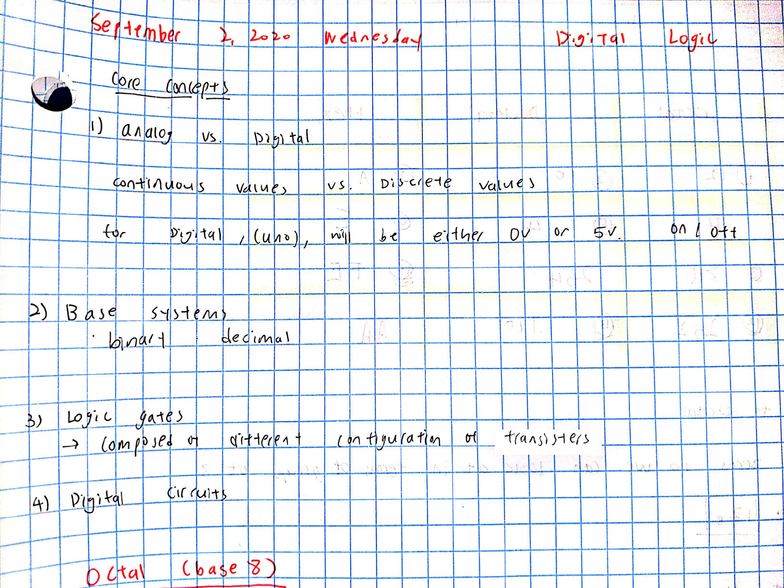 September 2, 2020 Wednesday Digital Logic
Core Concepts
1) analog vs. Digital
continuous values vs. Discrete values
for Digital, (uno), will be either 0V or 5V. on / off
2) Base systems
· binary decimal
3) Logic gates
→ composed of different configuration of transisters
4) Digital circuits
Octal (base 8)